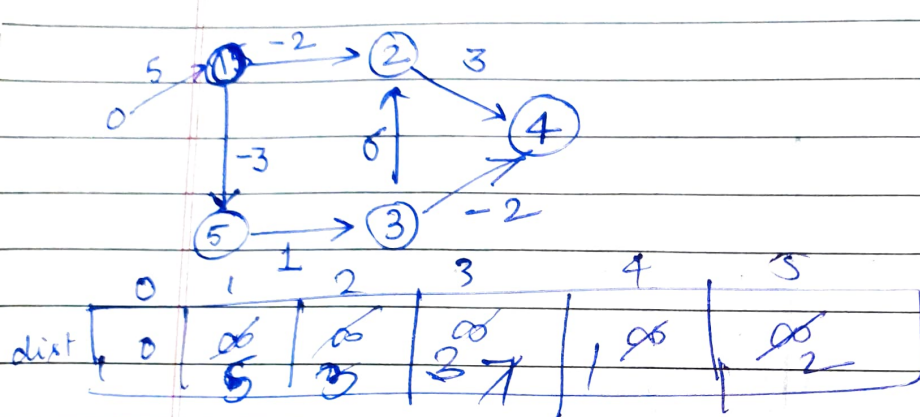 5 1 -2 2 3
0 4
-3 6
5 1 3 -2
0 1 2 3 4 5
dist 0 ∞ ∞ ∞ ∞ ∞
5 3 3 1 2